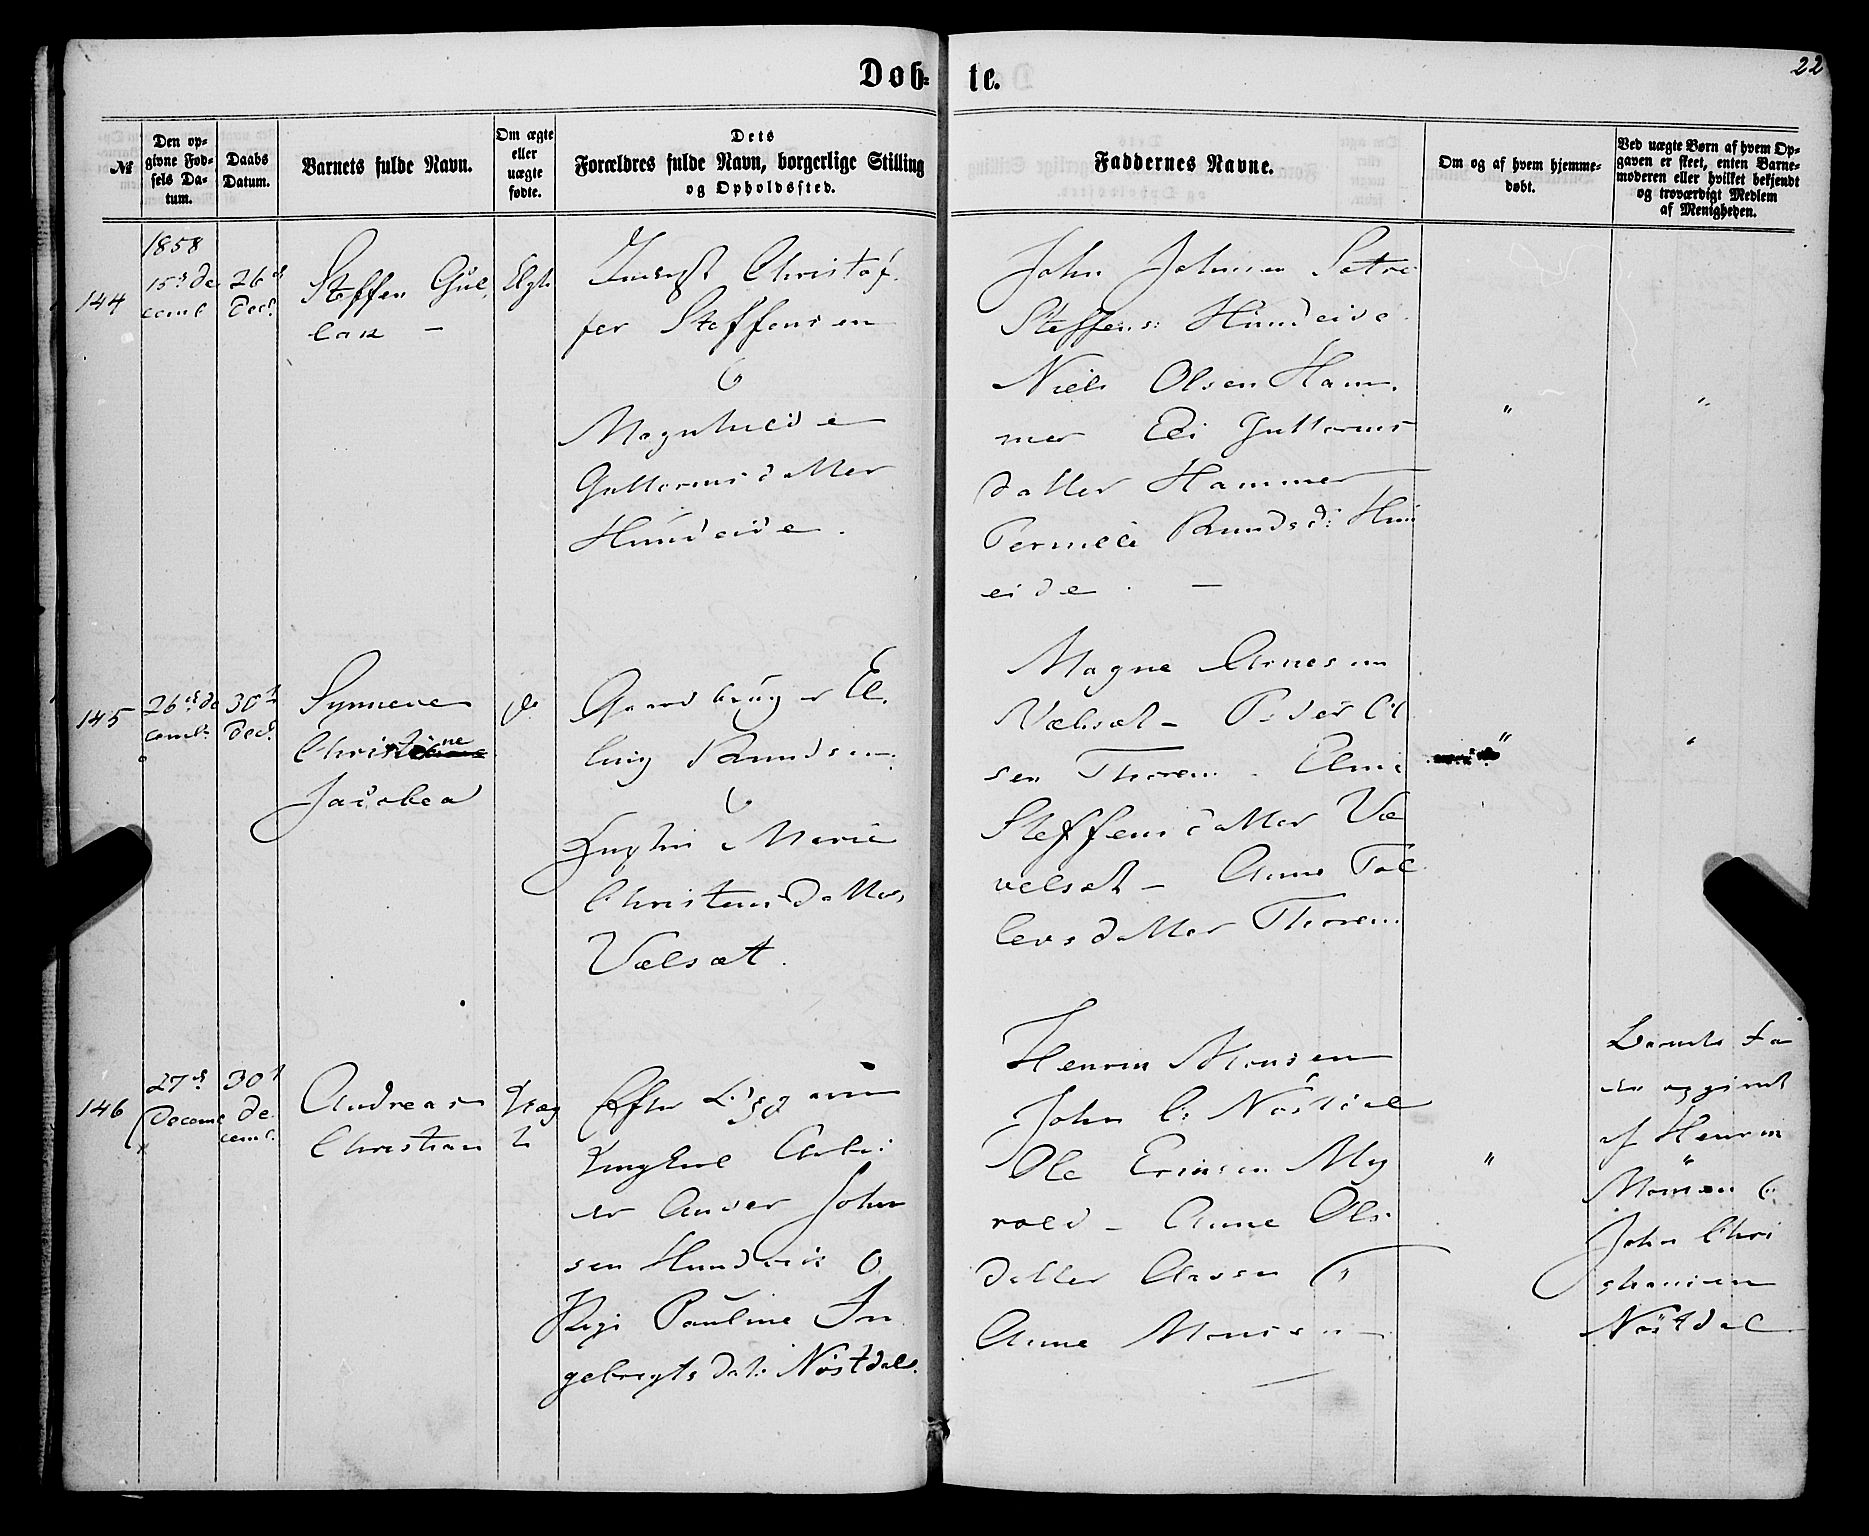 Døb- te.
22
№
Den op-
givne Fød-
sels Da-
tum.
Daabs
Datum.
Barnets fulde Navn.
Om ægte
eller
uægte
fødte.
Dets
Forældres fulde Navn, borgerlige Stilling
og Opholdssted.
Faddernes Navne.
Om og af hvem hjemme-
døbt.
Ved uægte Børn af hvem Op-
gaven er skeet, enten Barne-
moderen eller hvilket bekjendt
og troværdigt Medlem
af Menigheden.
1858
144
15de de
cemb
26d
Decr
Steffen Gul
lak –
Ægte
Christof-
fer Steffensen
Guttormsdatter
Hundeide.
John Johnsen
Steffens: Hundeide
Niels Olsen Ham-
mer Eli Guttorms
datter Hammer
Pernille Knudsd: Hun
eide. –
"
"
145
26de de
cembr
30d
Decr
Synneve
Christine
Jacobea
do
Gaardbruger El-
ling Knudsen
Marie
Christensdatter
Vælsæt.
Magne Arnesen
Vælsæt – Peder Ol
sen
Steffensdatter Væ
velsæt – Anne Tol
levsdatter
"
"
146
27de
Decemb
30d
De
cemb.
Andreas
Christian
Uæg
te
Efter
Ungkarl Arbei
der Anders John
sen Hundeide
Pige Pauline In
gebregts dat: Nøstdal.
Henrik Monsen
John C: Nøstdal
Ole Eriksen My
rold – Anne Ols
datter
Anne Mons
"
Barnets Fa
der opgivet
af Henrik
Monsen
John Chri
stiansen
Nøstdal